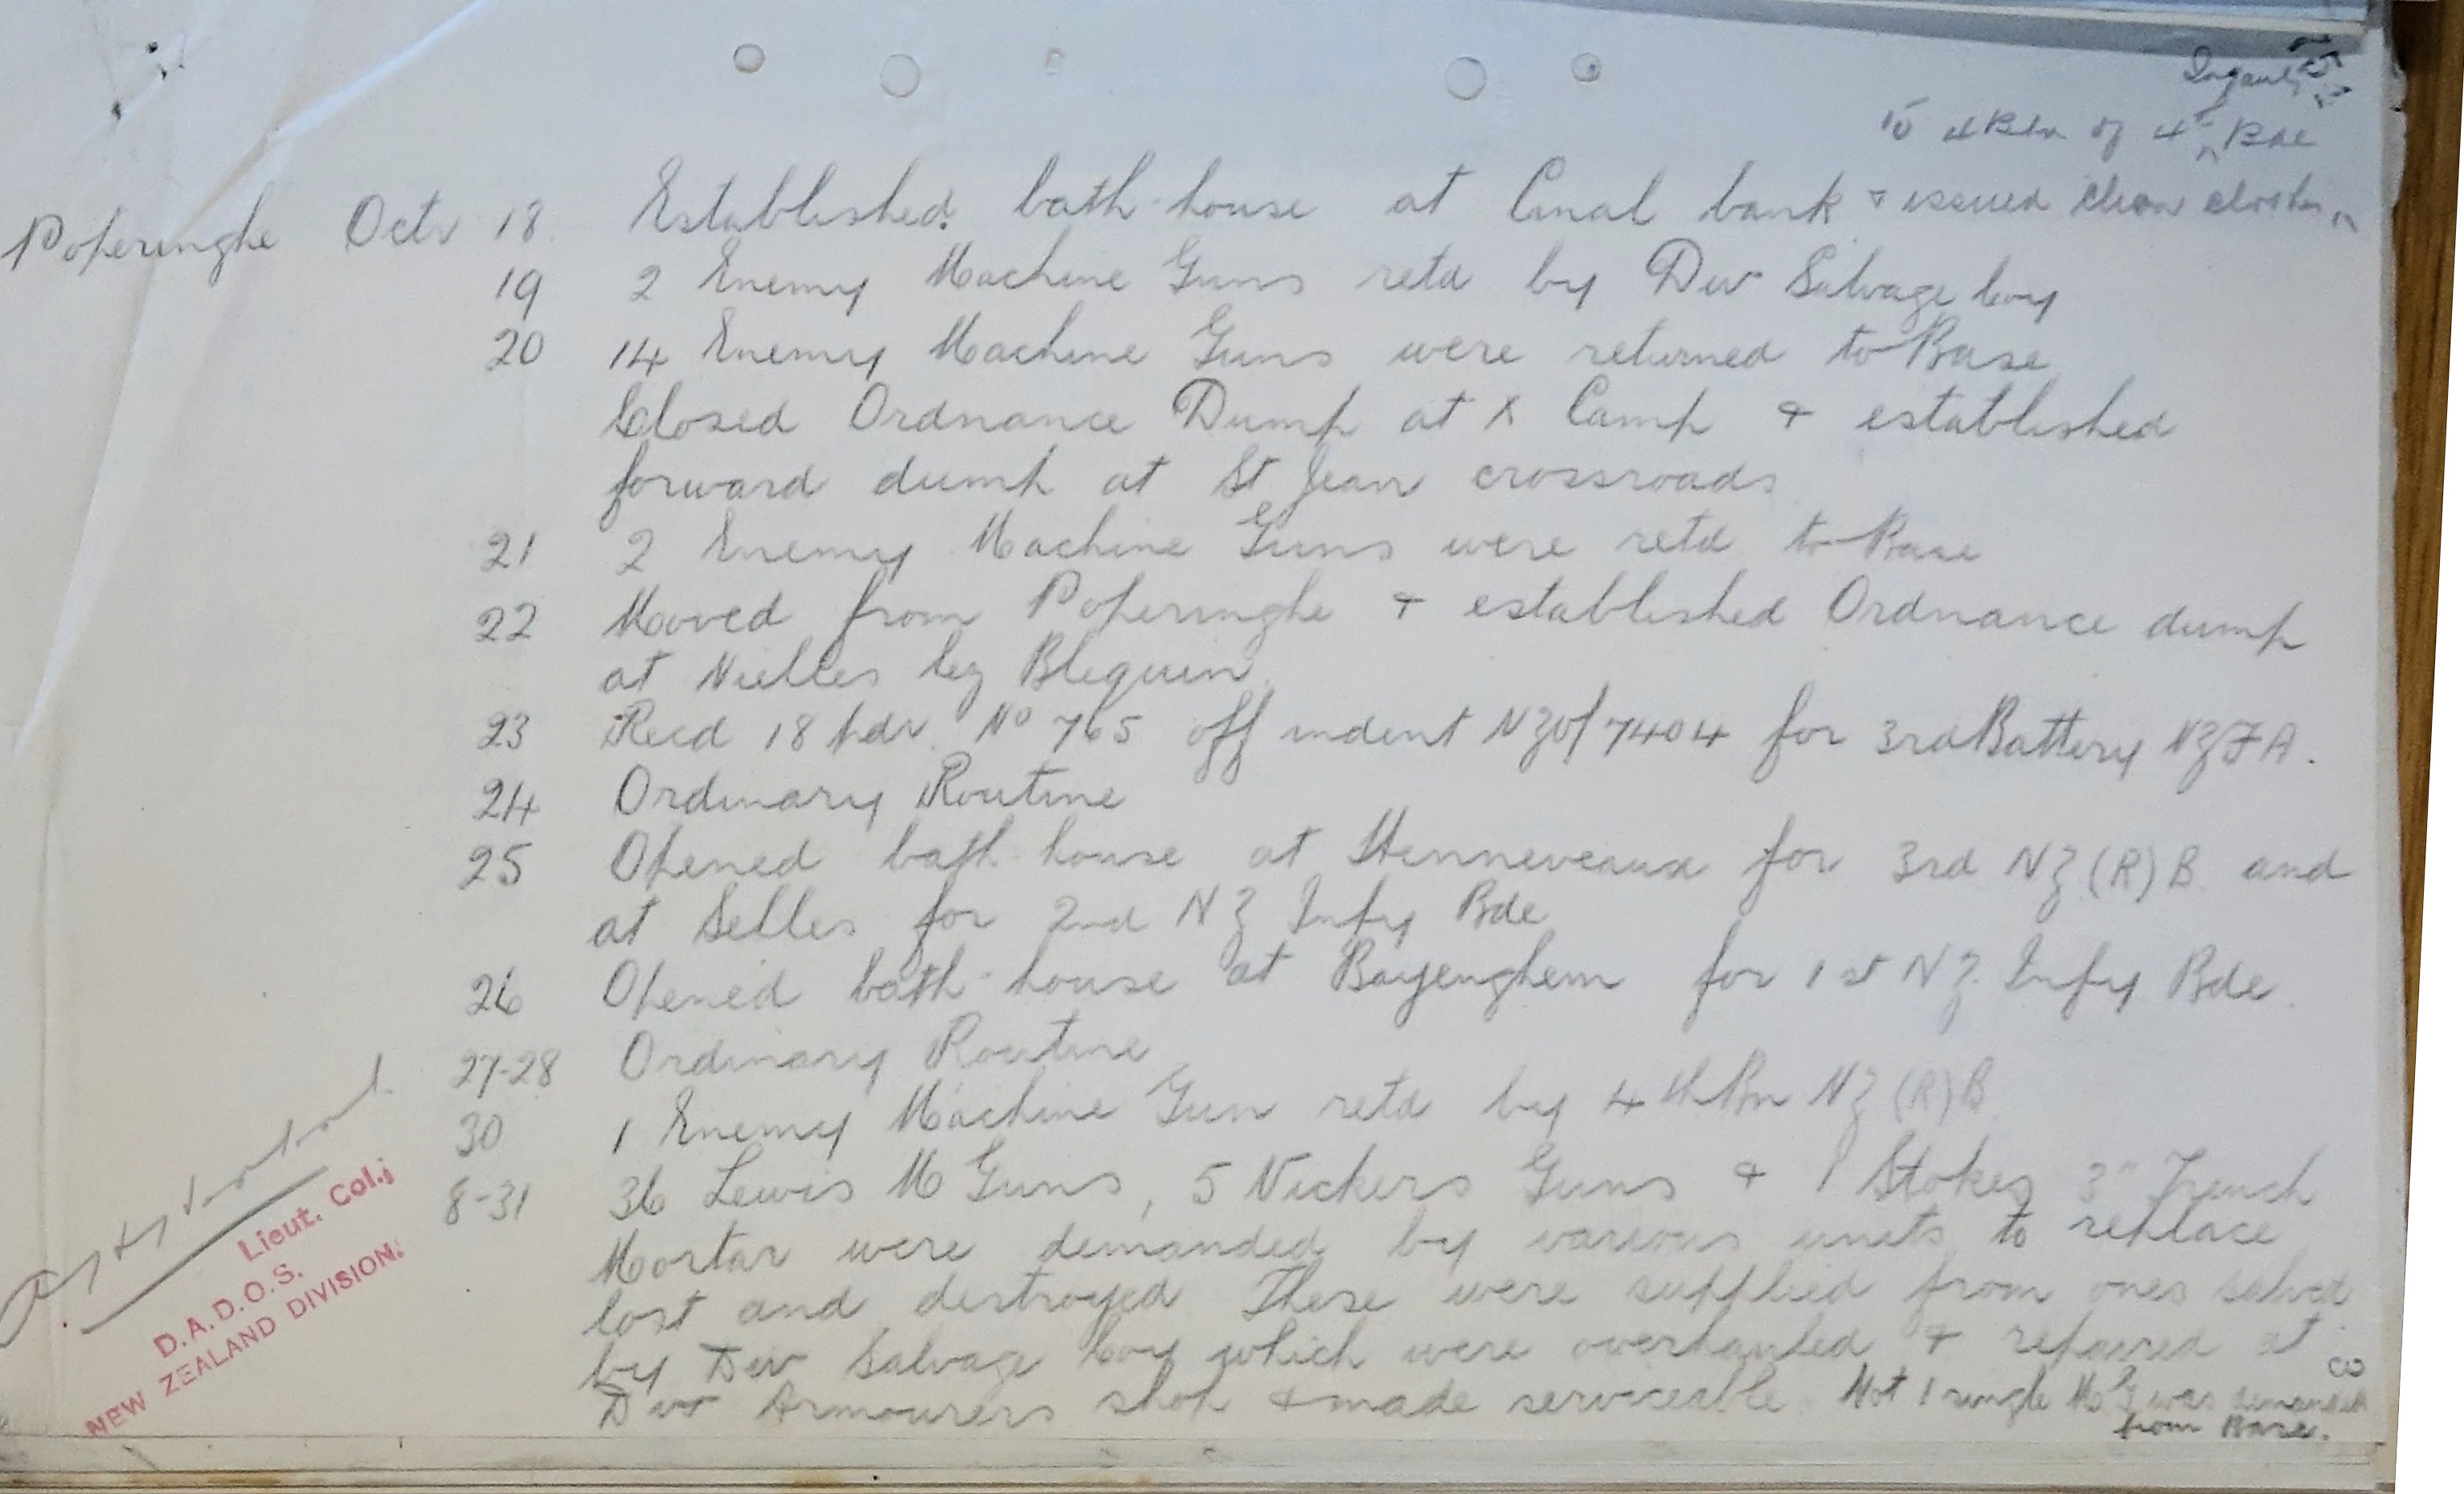 to 4 Bln of 4th Bde
Poperinghe Octr 18 Established bath-house at Canal bank & issued clean clothes
19 2 Enemy Machine Guns retd by Div Salvage Coy
20 14 Enemy Machine Guns were returned to Base
Closed Ordnance Dump at X Camp & established
forward dump at St Jean crossroads
21 2 Enemy Machine Guns were retd to Base
22 Moved from Poperinghe & established Ordnance dump
at Nielles lez Blequin
23 Recd 18 pdr No 765 off indent NZO/7404 for 3rd Battery NZFA.
24 Ordinary Routine
25 Opened bath-house at Henneveaux for 3rd NZ (R) B. and
at Selles for 2nd NZ Infy Bde
26 Opened bath-house at Bayenghem for 1st NZ. Infy Bde.
27-28 Ordinary Routine
30 1 Enemy Machine Gun retd by 4th Bn NZ (R) B.
8-31 36 Lewis M Guns, 5 Vickers Guns & 1 Stokes 3" Trench
Mortar were demanded by various units to replace
lost and destroyed These were supplied from ones salved
by Div Salvage Coy which were overhauled & repaired at
Div Armourers shop & made serviceable. Not 1 single M G was demanded
from Base.
Lieut. Col.;
D.A.D.O.S.
NEW ZEALAND DIVISION.
8